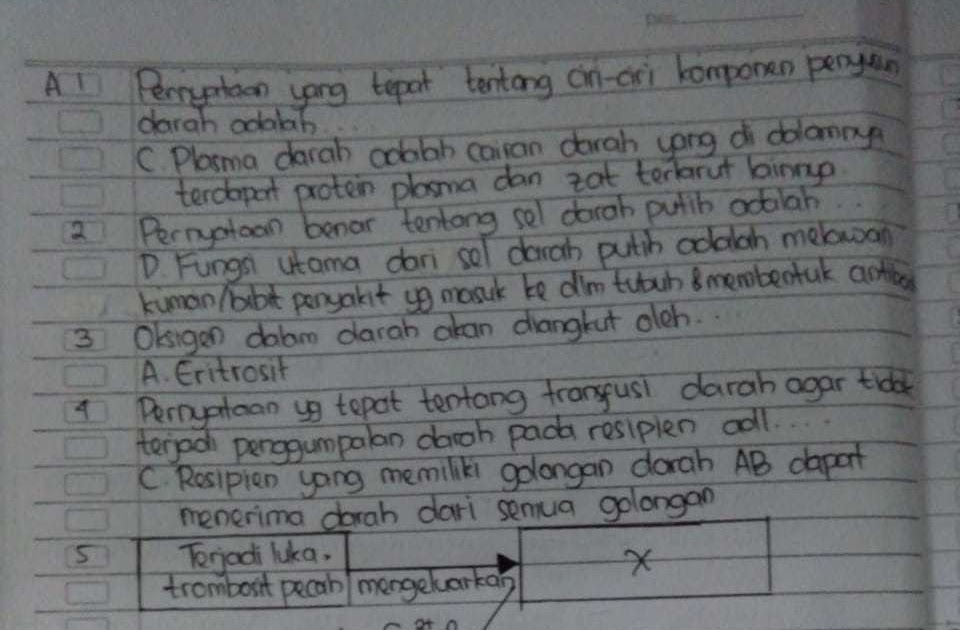 Date:
A 1 Pernyataan yang tepat tentang ciri-ciri komponen penyusun
darah adalah ...
C. Plasma darah adalah cairan darah yang di dalamnya
terdapat protein plasma dan zat terlarut lainnya.
2 Pernyataan benar tentang sel darah putih adalah ...
D. Fungsi utama dari sel darah putih adalah melawan
kuman/bibit penyakit yg masuk ke dlm tubuh & membentuk antibodi
3 Oksigen dalam darah akan diangkut oleh...
A. Eritrosit
4 Pernyataan yg tepat tentang transfusi darah agar tidak
terjadi penggumpalan darah pada resipien adl....
C. Resipien yang memiliki golongan darah AB dapat
menerima darah dari semua golongan
5 Terjadi luka, X
trombosit pecah mengeluarkan